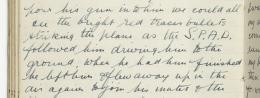 pour his gun into him we could all
see the bright red tracer bullets
striking the plane as the S.P.A.D.
followed him driving him to the
ground, when he had him finished
he left him & flew away up in the
air again to join his mates & the